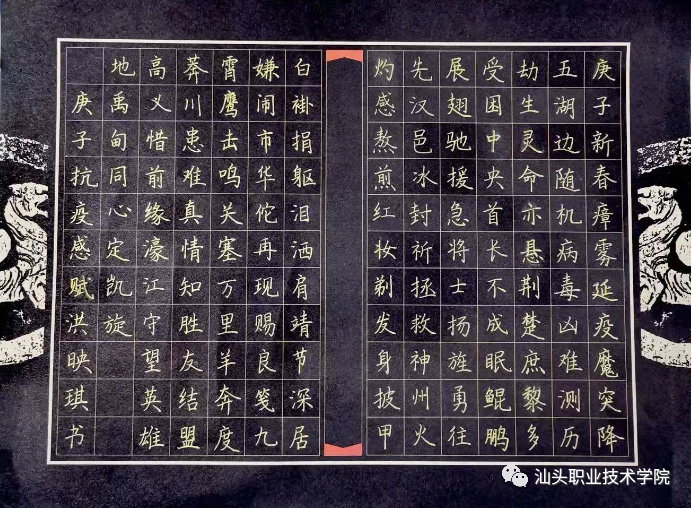 庚子新春瘴雾延疫魔突降
五湖边随机病毒凶难测历
劫生灵命亦悬荆楚庶黎多
受困中央首长不成眠鲲鹏
展翅驰援急将士扬旌勇往
先汉邑冰封祈拯救神州火
灼感熬煎红妆剃发身披甲
白褂捐躯泪洒肩靖节深居
嫌闹市华佗再现赐良笺九
霄鹰击鸣关塞万里羊奔度
莽川患难真情知胜友结盟
高义惜前缘濠江守望英雄
地禹甸同心定凯旋
庚子抗疫感赋洪映琪书
汕头职业技术学院